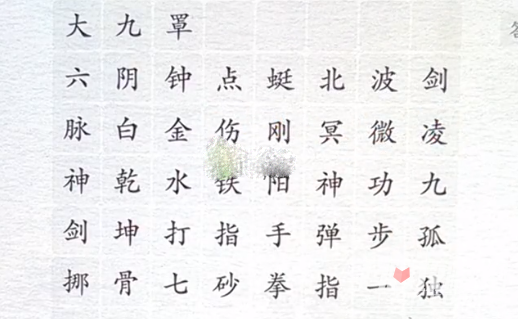 大九罩
六阴钟点蜓北波剑
脉白金伤刚冥微凌
神乾水铁阳神功九
剑坤打指手弹步孤
挪骨七砂拳指一独